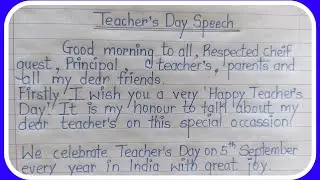 Teacher's Day Speech
Good morning to all, Respected cheif
guest, Principal, teacher's, parents and
all my dear friends.
Firstly I wish you a very 'Happy Teacher's
Day.' It is my honour to talk about my
dear teacher's on this special occassion!
We celebrate Teacher's Day on 5th September
every year in India with great joy.